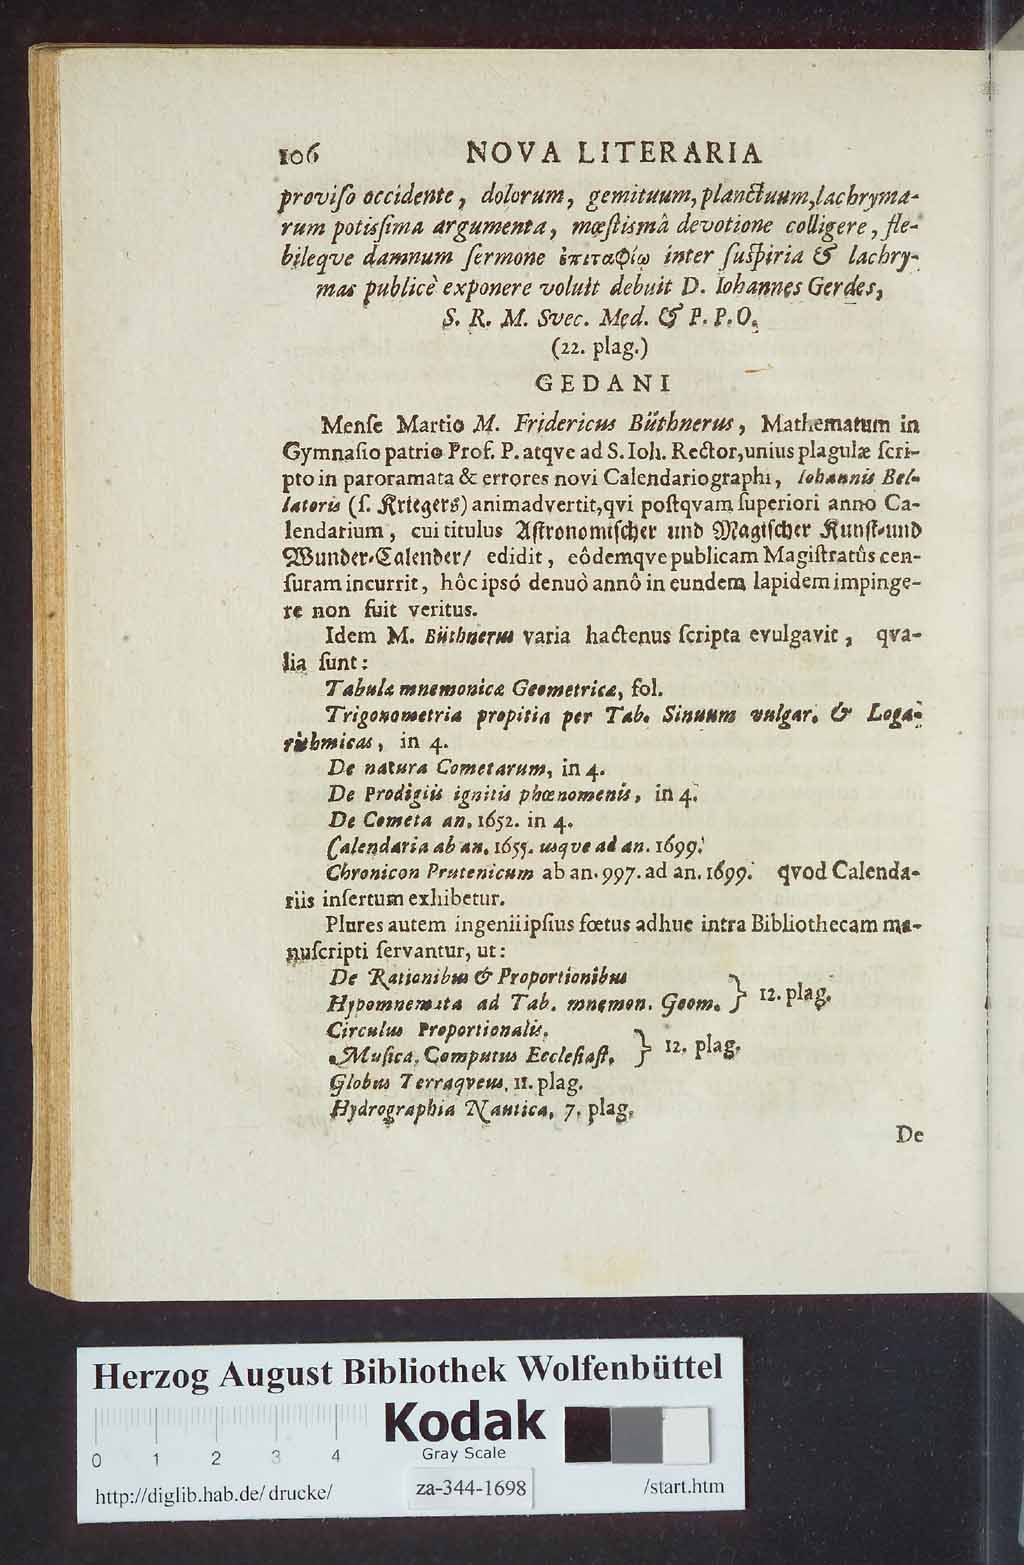 106 NOVA LITERARIA
proviſo occidente, dolorum, gemituum, planctuum, lachryma-
rum potisſima argumenta, mœſtismâ devotione colligere, fle-
bileqve damnum ſermone ἐπιταφίῳ inter ſuſpiria & lachry-
mas publicè exponere voluit debuit D. Iohannes Gerdes,
S. R. M. Svec. Med. & P. P. O.
(22. plag.)
GEDANI
Menſe Martio M. Fridericus Büthnerus, Mathematum in
Gymnaſio patrio Prof. P. atqve ad S. Ioh. Rector, unius plagulæ ſcri-
pto in paroramata & errores novi Calendariographi, Iohannis Bel-
latoris (ſ. Kriegers) animadvertit, qvi poſtqvam ſuperiori anno Ca-
lendarium, cui titulus Aſtronomiſcher und Magiſcher Kunſt-und
Wunder-Calender/ edidit, eôdemqve publicam Magiſtratûs cen-
ſuram incurrit, hôc ipsó denuò annô in eundem lapidem impinge-
re non fuit veritus.
Idem M. Büthnerus varia hactenus ſcripta evulgavit, qva-
lia ſunt:
Tabulæ mnemonicæ Geometricæ, fol.
Trigonometria propitia per Tab. Sinuum vulgar. & Loga-
rithmicas, in 4.
De natura Cometarum, in 4.
De Prodigiis ignitis phœnomenis, in 4.
De Cometa an. 1652. in 4.
Calendaria ab an. 1655. usqve ad an. 1699.
Chronicon Prutenicum ab an. 997. ad an. 1699. qvod Calenda-
riis inſertum exhibetur.
Plures autem ingenii ipſius fœtus adhuc intra Bibliothecam ma-
nuſcripti ſervantur, ut:
De Rationibus & Proportionibus
Hypomnemata ad Tab. mnemon. Geom. } 12. plag.
Circulus Proportionalis.
Muſica, Computus Eccleſiaſt. } 12. plag.
Globus Terraqveus, 11. plag.
Hydrographia Nautica, 7. plag.
De
Herzog August Bibliothek Wolfenbüttel
Kodak
Gray Scale
0 1 2 3 4
http://diglib.hab.de/drucke/ za-344-1698 /start.htm